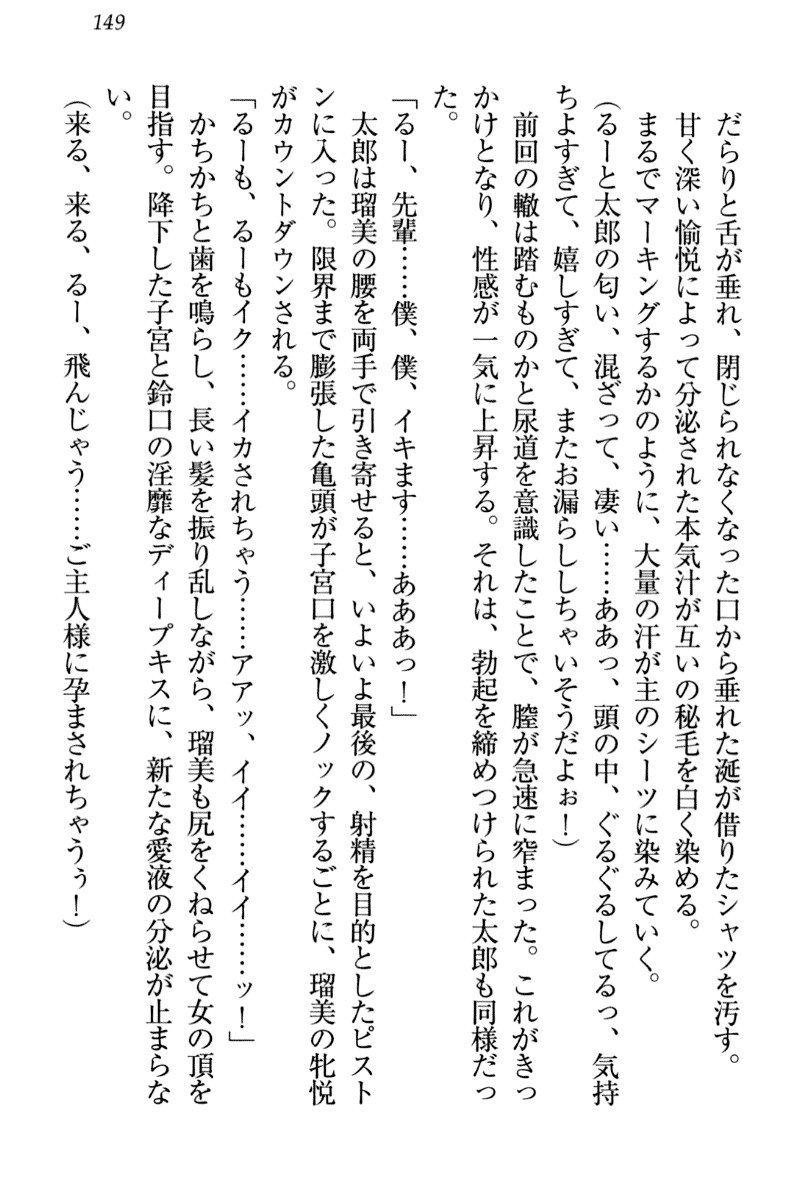 149
だらりと舌が垂れ、閉じられなくなった口から垂れた涎が借りたシャツを汚す。
甘く深い愉悦によって分泌された本気汁が互いの秘毛を白く染める。
まるでマーキングするかのように、大量の汗が主のシーツに染みていく。
(るーと太郎の匂い、混ざって、凄い……ああっ、頭の中、ぐるぐるしてるっ、気持
ちよすぎて、嬉しすぎて、またお漏らししちゃいそうだよぉ!)
前回の轍は踏むものかと尿道を意識したことで、膣が急速に窄まった。これがきっ
かけとなり、性感が一気に上昇する。それは、勃起を締めつけられた太郎も同様だっ
た。
「るー、先輩……僕、僕、イキます……あああっ!」
太郎は瑠美の腰を両手で引き寄せると、いよいよ最後の、射精を目的としたピスト
ンに入った。限界まで膨張した亀頭が子宮口を激しくノックするごとに、瑠美の牝悦
がカウントダウンされる。
「るーも、るーもイク……イカされちゃう……アアッ、イイ……イイ……ッ!」
かちかちと歯を鳴らし、長い髪を振り乱しながら、瑠美も尻をくねらせて女の頂を
目指す。降下した子宮と鈴口の淫靡なディープキスに、新たな愛液の分泌が止まらな
い。
(来る、来る、るー、飛んじゃう……ご主人様に孕まされちゃうぅ!)